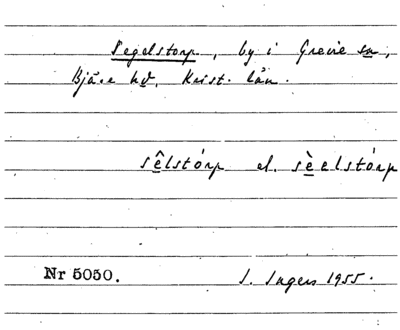 Segelstorp, by i Grevie sn,
Bjäre hd, Krist. län.
sê̱lstórp el. sè̱elstórp
Nr 5050. I. Ingers 1955.